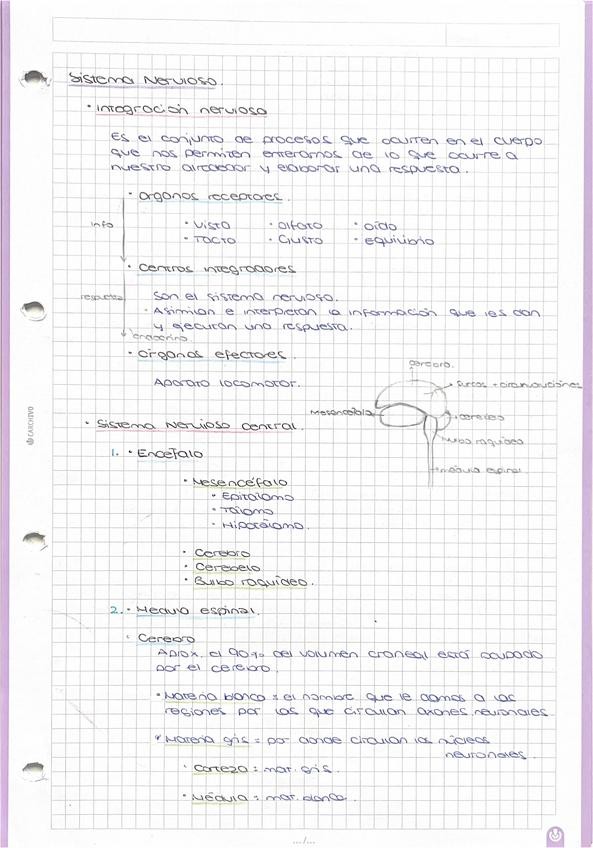 Sistema Nervioso.
• Integración nerviosa
Es el conjunto de procesos que ocurren en el cuerpo
que nos permiten enterarnos de lo que ocurre a
nuestro alrededor y elaborar una respuesta.
• Órganos receptores.
info
• Vista • Olfato • Oído
• Tacto • Gusto • equilibrio
• Centros integradores
respuesta
Son el sistema nervioso.
• Asimilan e interpretan la información que les dan
y ejecutan una respuesta.
endocrino
• Órganos efectores.
Aparato locomotor.
cerebro.
surcos + circunvoluciones
Mesencéfalo
cerebelo
bulbo raquídeo
médula espinal
• Sistema Nervioso central.
1. • Encéfalo
• Mesencéfalo
• Epitálamo
• Tálamo
• Hipotálamo.
• Cerebro
• Cerebelo
• Bulbo raquídeo.
2. • Médula espinal.
• Cerebro
Aprox. el 90% del volumen craneal está ocupado
por el cerebro.
• Materia blanca = el nombre que le damos a las
regiones por las que circulan axones neuronales
• Materia gris = por donde circulan los núcleos
neuronales.
• Corteza = mat. gris.
• Médula = mat. blanca.
CARCHIVO
.../...